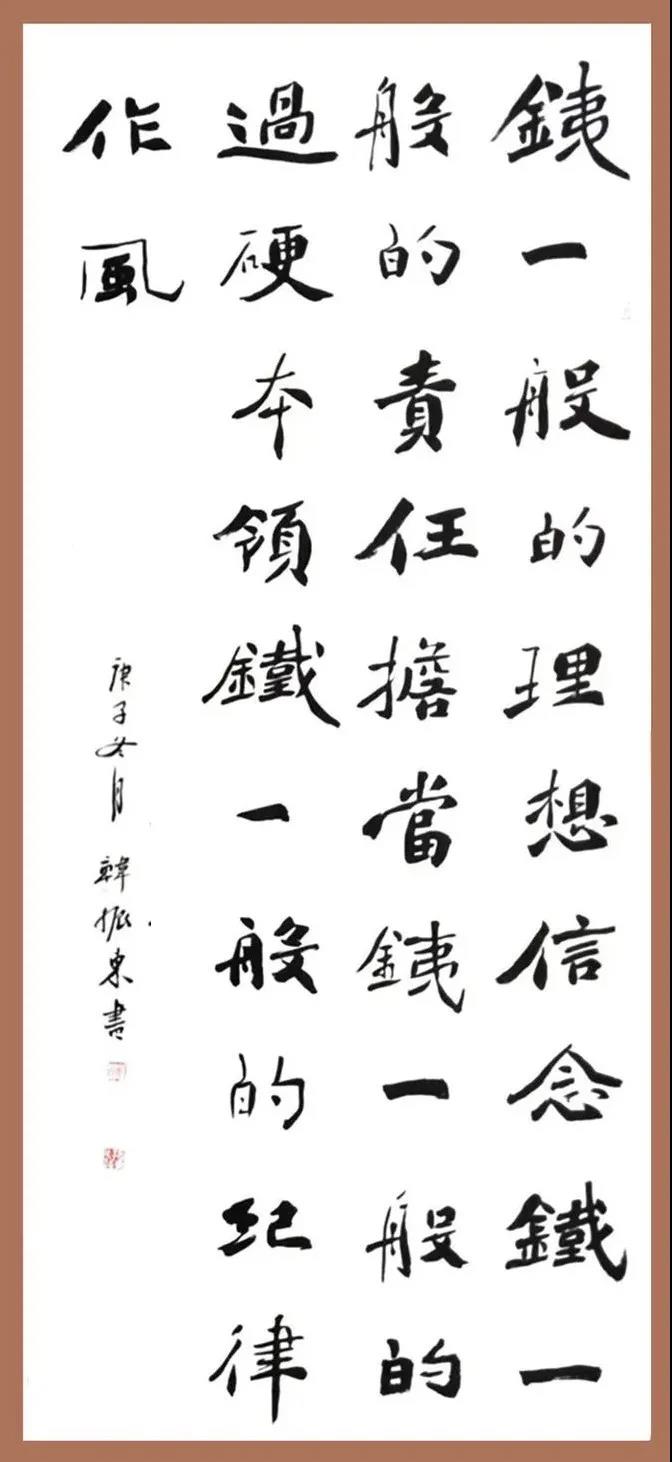 銕一般的理想信念鐵一
般的責任擔當銕一般的
過硬本領鐵一般的紀律
作風
庚子冬月韓振東書